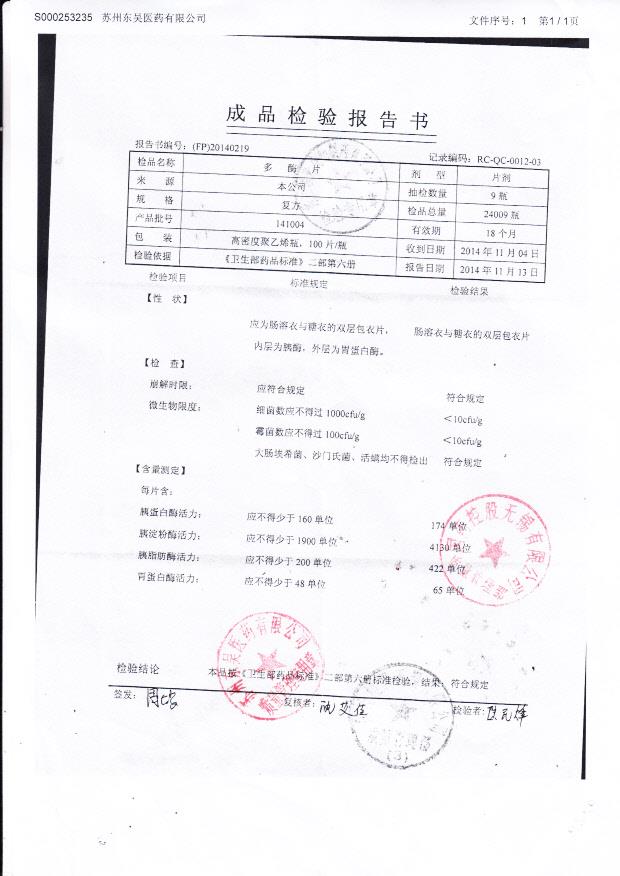 S000253235 苏州东吴医药有限公司
文件序号：1 第1/1页
成品检验报告书
报告书编号：(FP)20140219
记录编码：RC-QC-0012-03
检品名称 多酶片 剂型 片剂
来源 本公司 抽检数量 9瓶
规格 复方 检品总量 24009瓶
产品批号 141004 有效期 18个月
包装 高密度聚乙烯瓶，100片/瓶 收到日期 2014年11月04日
检验依据 《卫生部药品标准》二部第六册 报告日期 2014年11月13日
检验项目 标准规定 检验结果
【性状】
应为肠溶衣与糖衣的双层包衣片， 肠溶衣与糖衣的双层包衣片
内层为胰酶，外层为胃蛋白酶。
【检查】
崩解时限： 应符合规定 符合规定
微生物限度： 细菌数应不得过1000cfu/g ＜10cfu/g
霉菌数应不得过100cfu/g ＜10cfu/g
大肠埃希菌、沙门氏菌、活螨均不得检出 符合规定
【含量测定】
每片含：
胰蛋白酶活力： 应不得少于160单位 174单位
胰淀粉酶活力： 应不得少于1900单位 4130单位
胰脂肪酶活力： 应不得少于200单位 422单位
胃蛋白酶活力： 应不得少于48单位 65单位
控股无锡有限公司
东吴医药有限公司
检验结论 本品按《卫生部药品标准》二部第六册标准检验，结果：符合规定
签发： 复核者： 检验者：
(3)